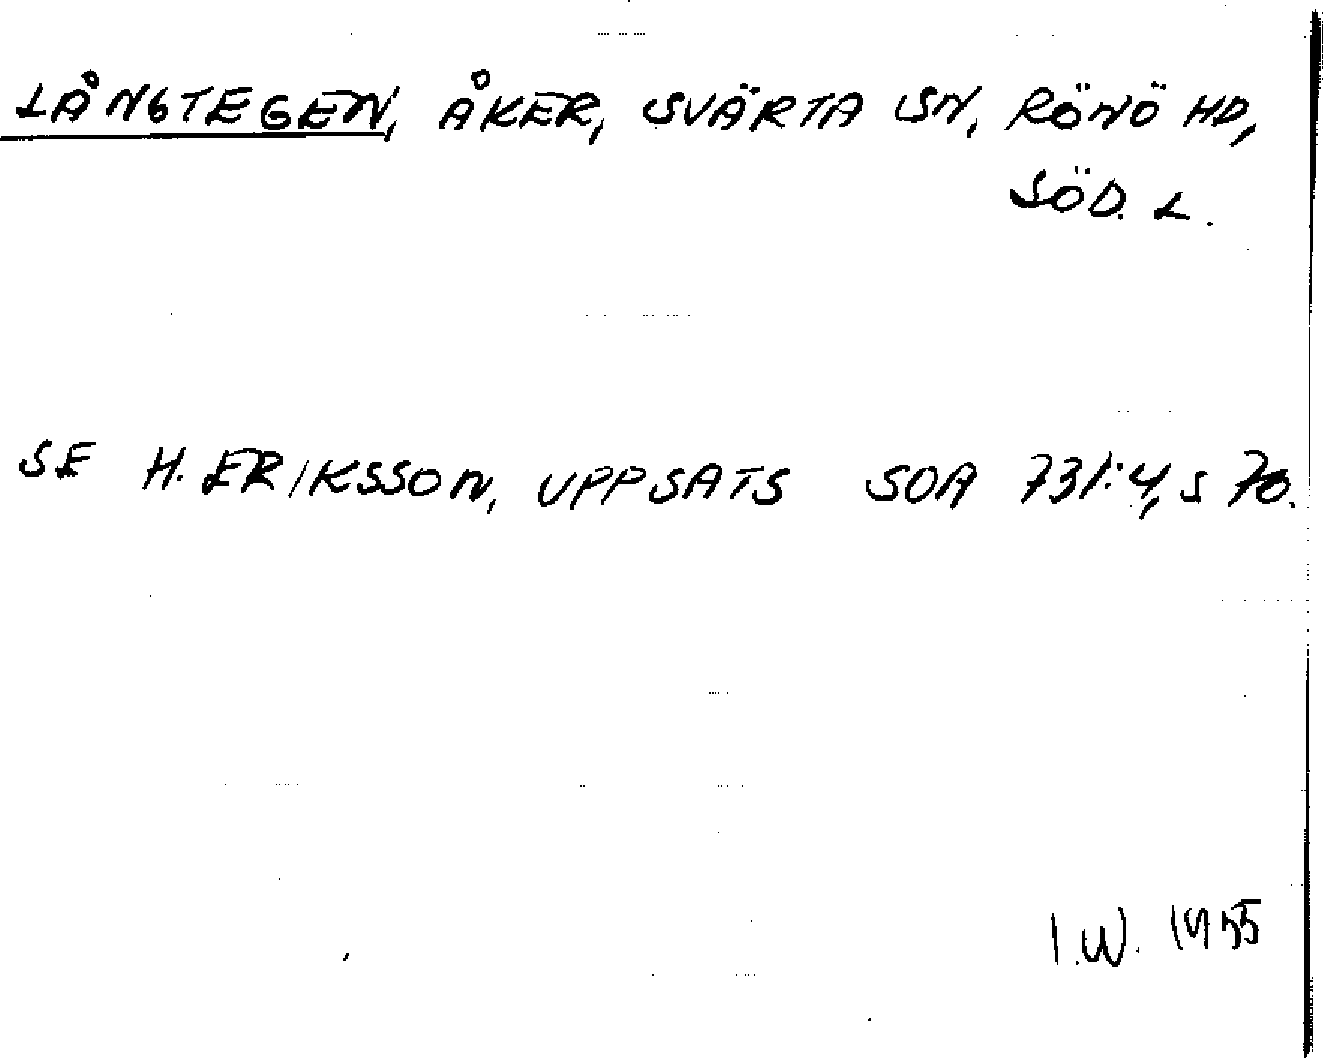 LÅNGTEGEN, ÅKER, SVÄRTA SN, RÖNÖ HD,
SÖD. L.
SE H. ERIKSSON, UPPSATS SOA 731:4, S 70.
I.W. 1955